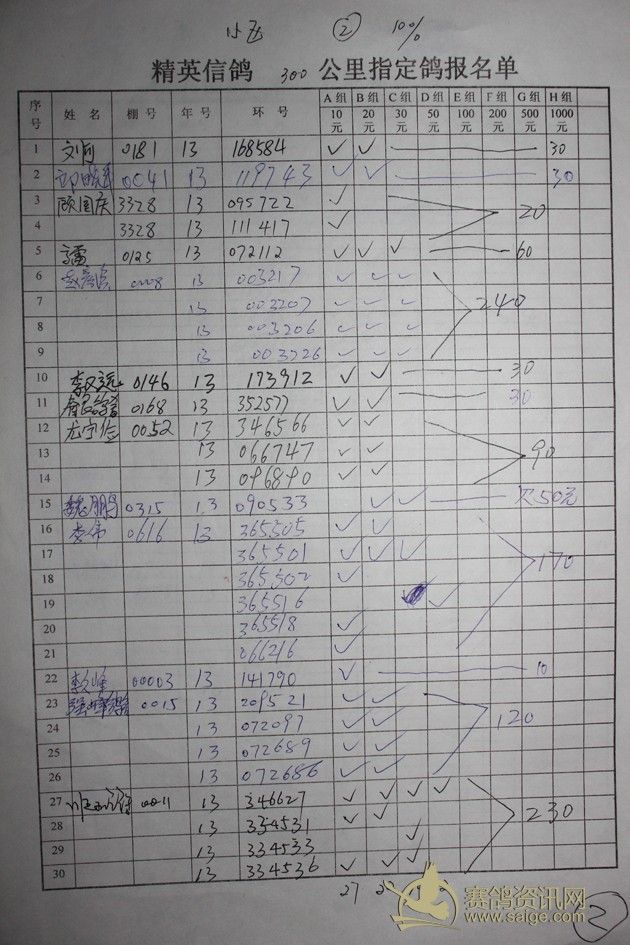 小飞 ② 10%
精英信鸽 300 公里指定鸽报名单
序号 姓名 棚号 年号 环号 A组10元 B组20元 C组30元 D组50元 E组100元 F组200元 G组500元 H组1000元
1 0181 13 168584 ✓ ✓ 30
2 0041 13 119743 ✓ ✓ 30
3 顾国庆 3328 13 095722 ✓ 20
4 3328 13 111417 ✓
5 0125 13 072112 ✓ ✓ ✓ 60
6 13 003217 ✓ ✓ ✓ 240
7 13 003207 ✓ ✓ ✓
8 13 003206 ✓ ✓ ✓
9 13 003226 ✓ ✓ ✓
10 0146 13 173912 ✓ ✓ 30
11 0168 13 352577 ✓ ✓ 30
12 0052 13 346566 ✓ ✓ 90
13 13 066747 ✓ ✓
14 13 096890 ✓ ✓
15 魏鹏 0315 13 090533 ✓ ✓ 欠50元
16 李伟 0616 13 365505 ✓ ✓ 170
17 365501 ✓ ✓ ✓
18 365502 ✓
19 365516 ✓
20 365518 ✓
21 066216 ✓
22 00003 13 141790 ✓ 10
23 0015 13 209521 ✓ ✓ 120
24 13 072097 ✓ ✓
25 13 072689 ✓ ✓
26 13 072686 ✓ ✓
27 0011 13 346627 ✓ ✓ ✓ ✓ 230
28 13 334531 ✓ ✓
29 13 334533 ✓
30 13 334536 ✓ ✓ ✓
27
赛鸽资讯网
www.saige.com
②